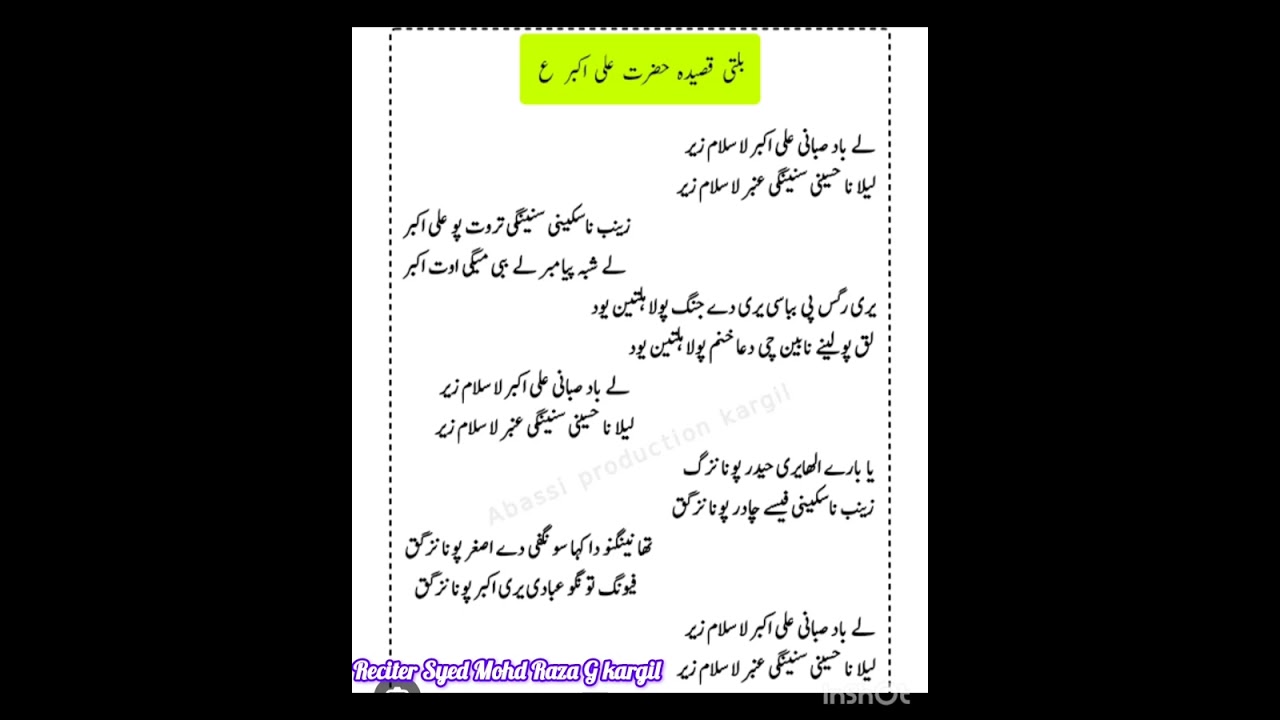 بلتی قصیدہ حضرت علی اکبر ع
لے باد صبانی علی اکبر لا سلام زیر
لیلا نا حسینی سنینگی عنبر لا سلام زیر
زینب نا سکینی سنینگی تروت پو علی اکبر
لے شبہ پیامبر لے ببی میگی اوت اکبر
یری رگس پی بباسی یری دے جنگ پولا ہلتین یود
لق پولینے نابین چی دعا خنم پولا ہلتین یود
لے باد صبانی علی اکبر لا سلام زیر
لیلا نا حسینی سنینگی عنبر لا سلام زیر
Abassi production kargil
یا بارے الھایری حیدر پونا نزگ
زینب نا سکینی فیسے چادر پونا نزگق
تھا نینگنو دا کہا سونگفی دے اصغر پونا نزگق
فیونگ تونگو عبادی یری اکبر پونا نزگق
لے باد صبانی علی اکبر لا سلام زیر
لیلا نا حسینی سنینگی عنبر لا سلام زیر
Reciter Syed Mohd Raza G kargil
InShOt